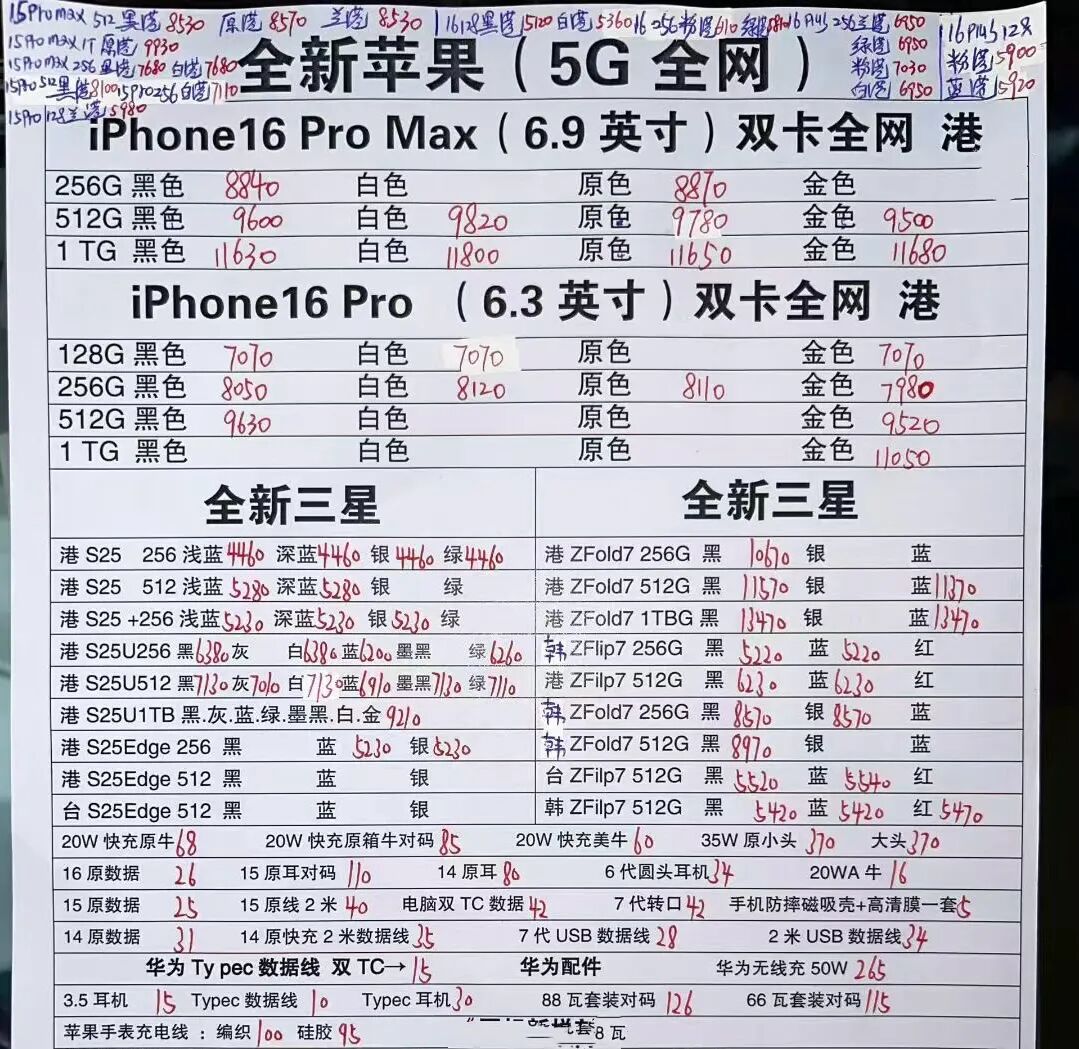 15Promax 512 黑港 8530 原港 8570 兰港 8530
15Promax 1T 原港 9930
15Promax 256 黑港 7680 白港 7680
15Pro 512 黑港 8100 15Pro 256 白港 7110
15Pro 128 兰港 5980
16 128 黑港 5120 白港 5360 16 256 粉港 6110 绿港 16Plus 256 兰港 6950
绿港 6950
粉港 7030
白港 6950
16Plus 128
粉港 5900
蓝港 5920
全新苹果（5G 全网）
iPhone16 Pro Max（6.9 英寸）双卡全网 港
256G 黑色 8840 白色 原色 8870 金色
512G 黑色 9600 白色 9820 原色 9780 金色 9500
1 TG 黑色 11630 白色 11800 原色 11650 金色 11680
iPhone16 Pro （6.3 英寸）双卡全网 港
128G 黑色 7070 白色 7070 原色 金色 7070
256G 黑色 8050 白色 8120 原色 8110 金色 7980
512G 黑色 9630 白色 原色 金色 9520
1 TG 黑色 白色 原色 金色 11050
全新三星
港 S25 256 浅蓝 4460 深蓝 4460 银 4460 绿 4460
港 S25 512 浅蓝 5280 深蓝 5280 银 绿
港 S25 +256 浅蓝 5230 深蓝 5230 银 5230 绿
港 S25U256 黑 6380 灰 白 6380 蓝 6200 墨黑 绿 6260
港 S25U512 黑 7130 灰 7010 白 7130 蓝 6910 墨黑 7130 绿 7110
港 S25U1TB 黑.灰.蓝.绿.墨黑.白.金 9210
港 S25Edge 256 黑 蓝 5230 银 5230
港 S25Edge 512 黑 蓝 银
台 S25Edge 512 黑 蓝 银
全新三星
港 ZFold7 256G 黑 10670 银 蓝
港 ZFold7 512G 黑 11570 银 蓝 11370
港 ZFold7 1TBG 黑 13470 银 蓝 13470
韩 ZFlip7 256G 黑 5220 蓝 5220 红
港 ZFilp7 512G 黑 6230 蓝 6230 红
韩 ZFold7 256G 黑 8570 银 8570 蓝
韩 ZFold7 512G 黑 8970 银 蓝
台 ZFilp7 512G 黑 5520 蓝 5540 红
韩 ZFilp7 512G 黑 5420 蓝 5420 红 5470
20W 快充原牛 68 20W 快充原箱牛对码 85 20W 快充美牛 60 35W 原小头 370 大头 370
16 原数据 26 15 原耳对码 110 14 原耳 80 6 代圆头耳机 34 20WA 牛 16
15 原数据 25 15 原线 2 米 40 电脑双 TC 数据 42 7 代转口 42 手机防摔磁吸壳+高清膜一套 5
14 原数据 31 14 原快充 2 米数据线 35 7 代 USB 数据线 28 2 米 USB 数据线 34
华为 Ty pec 数据线 双 TC→ 15 华为配件 华为无线充 50W 265
3.5 耳机 15 Typec 数据线 10 Typec 耳机 30 88 瓦套装对码 126 66 瓦套装对码 115
苹果手表充电线 ： 编织 100 硅胶 95 8 瓦